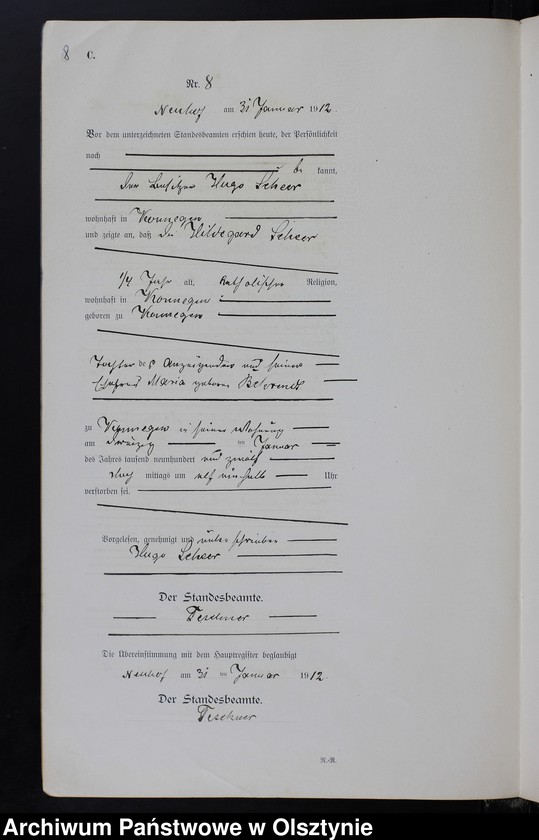 8 C.
Nr. 8
Neuhof am 31 Januar 1912.
Vor dem unterzeichneten Standesbeamten erschien heute, der Persönlichkeit
nach
be kannt,
der Besitzer Hugo Scheer
wohnhaft in Konnegen
und zeigte an, daß die Hildegard Scheer
1/4 Jahr alt, katholischer Religion,
wohnhaft in Konnegen
geboren zu Konnegen
Tochter des Anzeigenden und seiner
Ehefrau Maria geborene Behrendt
zu Konnegen in seiner Wohnung
am dreißig ten Januar
des Jahres tausend neunhundert und zwölf
mittags um elf einhalb Uhr
verstorben sei.
Vorgelesen, genehmigt und unterschrieben
Hugo Scheer
Der Standesbeamte.
Teschner
Die Übereinstimmung mit dem Hauptregister beglaubigt
Neuhof am 31 ten Januar 1912.
Der Standesbeamte.
Teschner
R.-R.
Archiwum Państwowe w Olsztynie